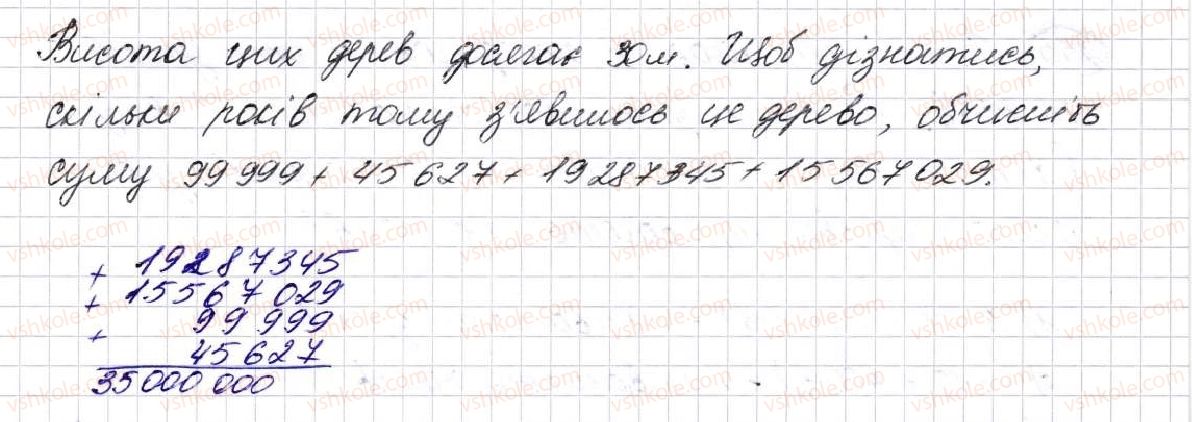 Висота цих дерев досягає 30м. Щоб дізнатись,
скільки років тому з'явилось це дерево, обчисліть
суму 99 999 + 45 627 + 19 287 345 + 15 567 029.
+ 19287345
+ 15567029
+ 99 999
45 627
35 000 000